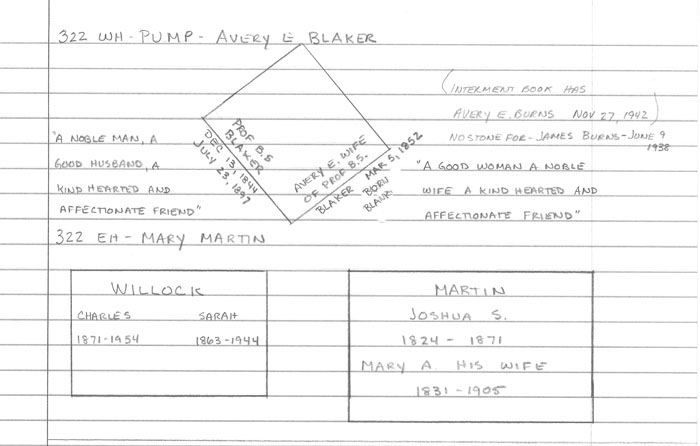 322 WH - PUMP - AVERY E BLAKER
(INTERMENT BOOK HAS
AVERY E. BURNS NOV 27, 1942)
NO STONE FOR - JAMES BURNS - JUNE 9
1938
"A NOBLE MAN, A
GOOD HUSBAND, A
KIND HEARTED AND
AFFECTIONATE FRIEND"
PROF B.S
BLAKER
DEC. 13, 1844
JULY 23, 1897
AVERY E. WIFE
OF PROF B.S.
BLAKER MAR 5, 1852
BORN
BLANK
"A GOOD WOMAN A NOBLE
WIFE A KIND HEARTED AND
AFFECTIONATE FRIEND"
322 EH - MARY MARTIN
WILLOCK
CHARLES SARAH
1871-1954 1863-1944
MARTIN
JOSHUA S.
1824 - 1871
MARY A. HIS WIFE
1831 - 1905